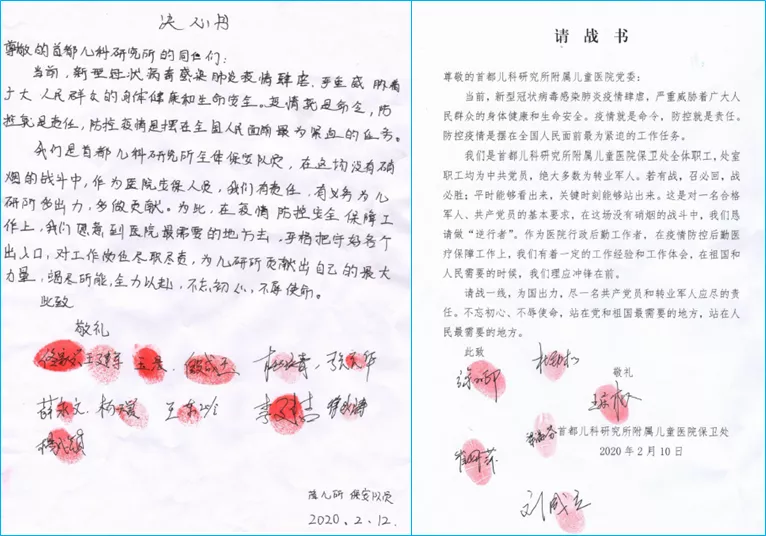 决心书
尊敬的首都儿科研究所的同志们:
当前,新型冠状病毒感染肺炎疫情肆虐,严重威胁着
广大人民群众的身体健康和生命安全。疫情就是命令,防
控就是责任,防控疫情是摆在全国人民面前最为紧迫的任务。
我们是首都儿科研究所全体保安队员,在这场没有硝
烟的战斗中,作为医院安保人员,我们有责任,有义务为儿
研所多出力,多做贡献。为此,在疫情防控安全保障工
作上,我们愿意到医院最需要的地方去,严格把守好各个
出入口,对工作岗位尽职尽责,为儿研所贡献出自己的最大
力量,竭尽所能,全力以赴,不忘初心,不辱使命。
此致
敬礼
薛永文
首儿所 保安队员
2020.2.12.
请战书
尊敬的首都儿科研究所附属儿童医院党委:
当前,新型冠状病毒感染肺炎疫情肆虐,严重威胁着广大人
民群众的身体健康和生命安全。疫情就是命令,防控就是责任。
防控疫情是摆在全国人民面前最为紧迫的工作任务。
我们是首都儿科研究所附属儿童医院保卫处全体职工,处室
职工均为中共党员,绝大多数为转业军人。若有战,召必回,战
必胜;平时能够看出来,关键时刻能够站出来。这是对一名合格
军人、共产党员的基本要求,在这场没有硝烟的战斗中,我们恳
请做“逆行者”。作为医院行政后勤工作者,在疫情防控后勤医
疗保障工作上,我们有着一定的工作经验和工作体会,在祖国和
人民需要的时候,我们理应冲锋在前。
请战一线,为国出力,尽一名共产党员和转业军人应尽的责
任。不忘初心、不辱使命,站在党和祖国最需要的地方,站在人
民最需要的地方。
此致
敬礼
首都儿科研究所附属儿童医院保卫处
2020年2月10日
刘成立